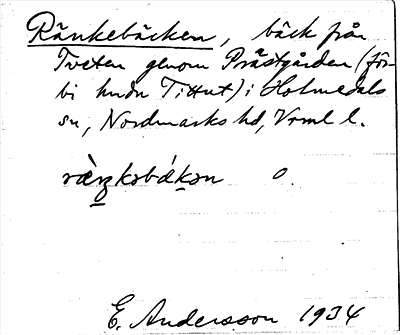 Ränkebäcken, bäck från
Tveten genom Prästgården (för-
bi hmdn Tittut) i Holmedals
sn, Nordmarks hd, Vrml l.
o.
E. Andersson 1934